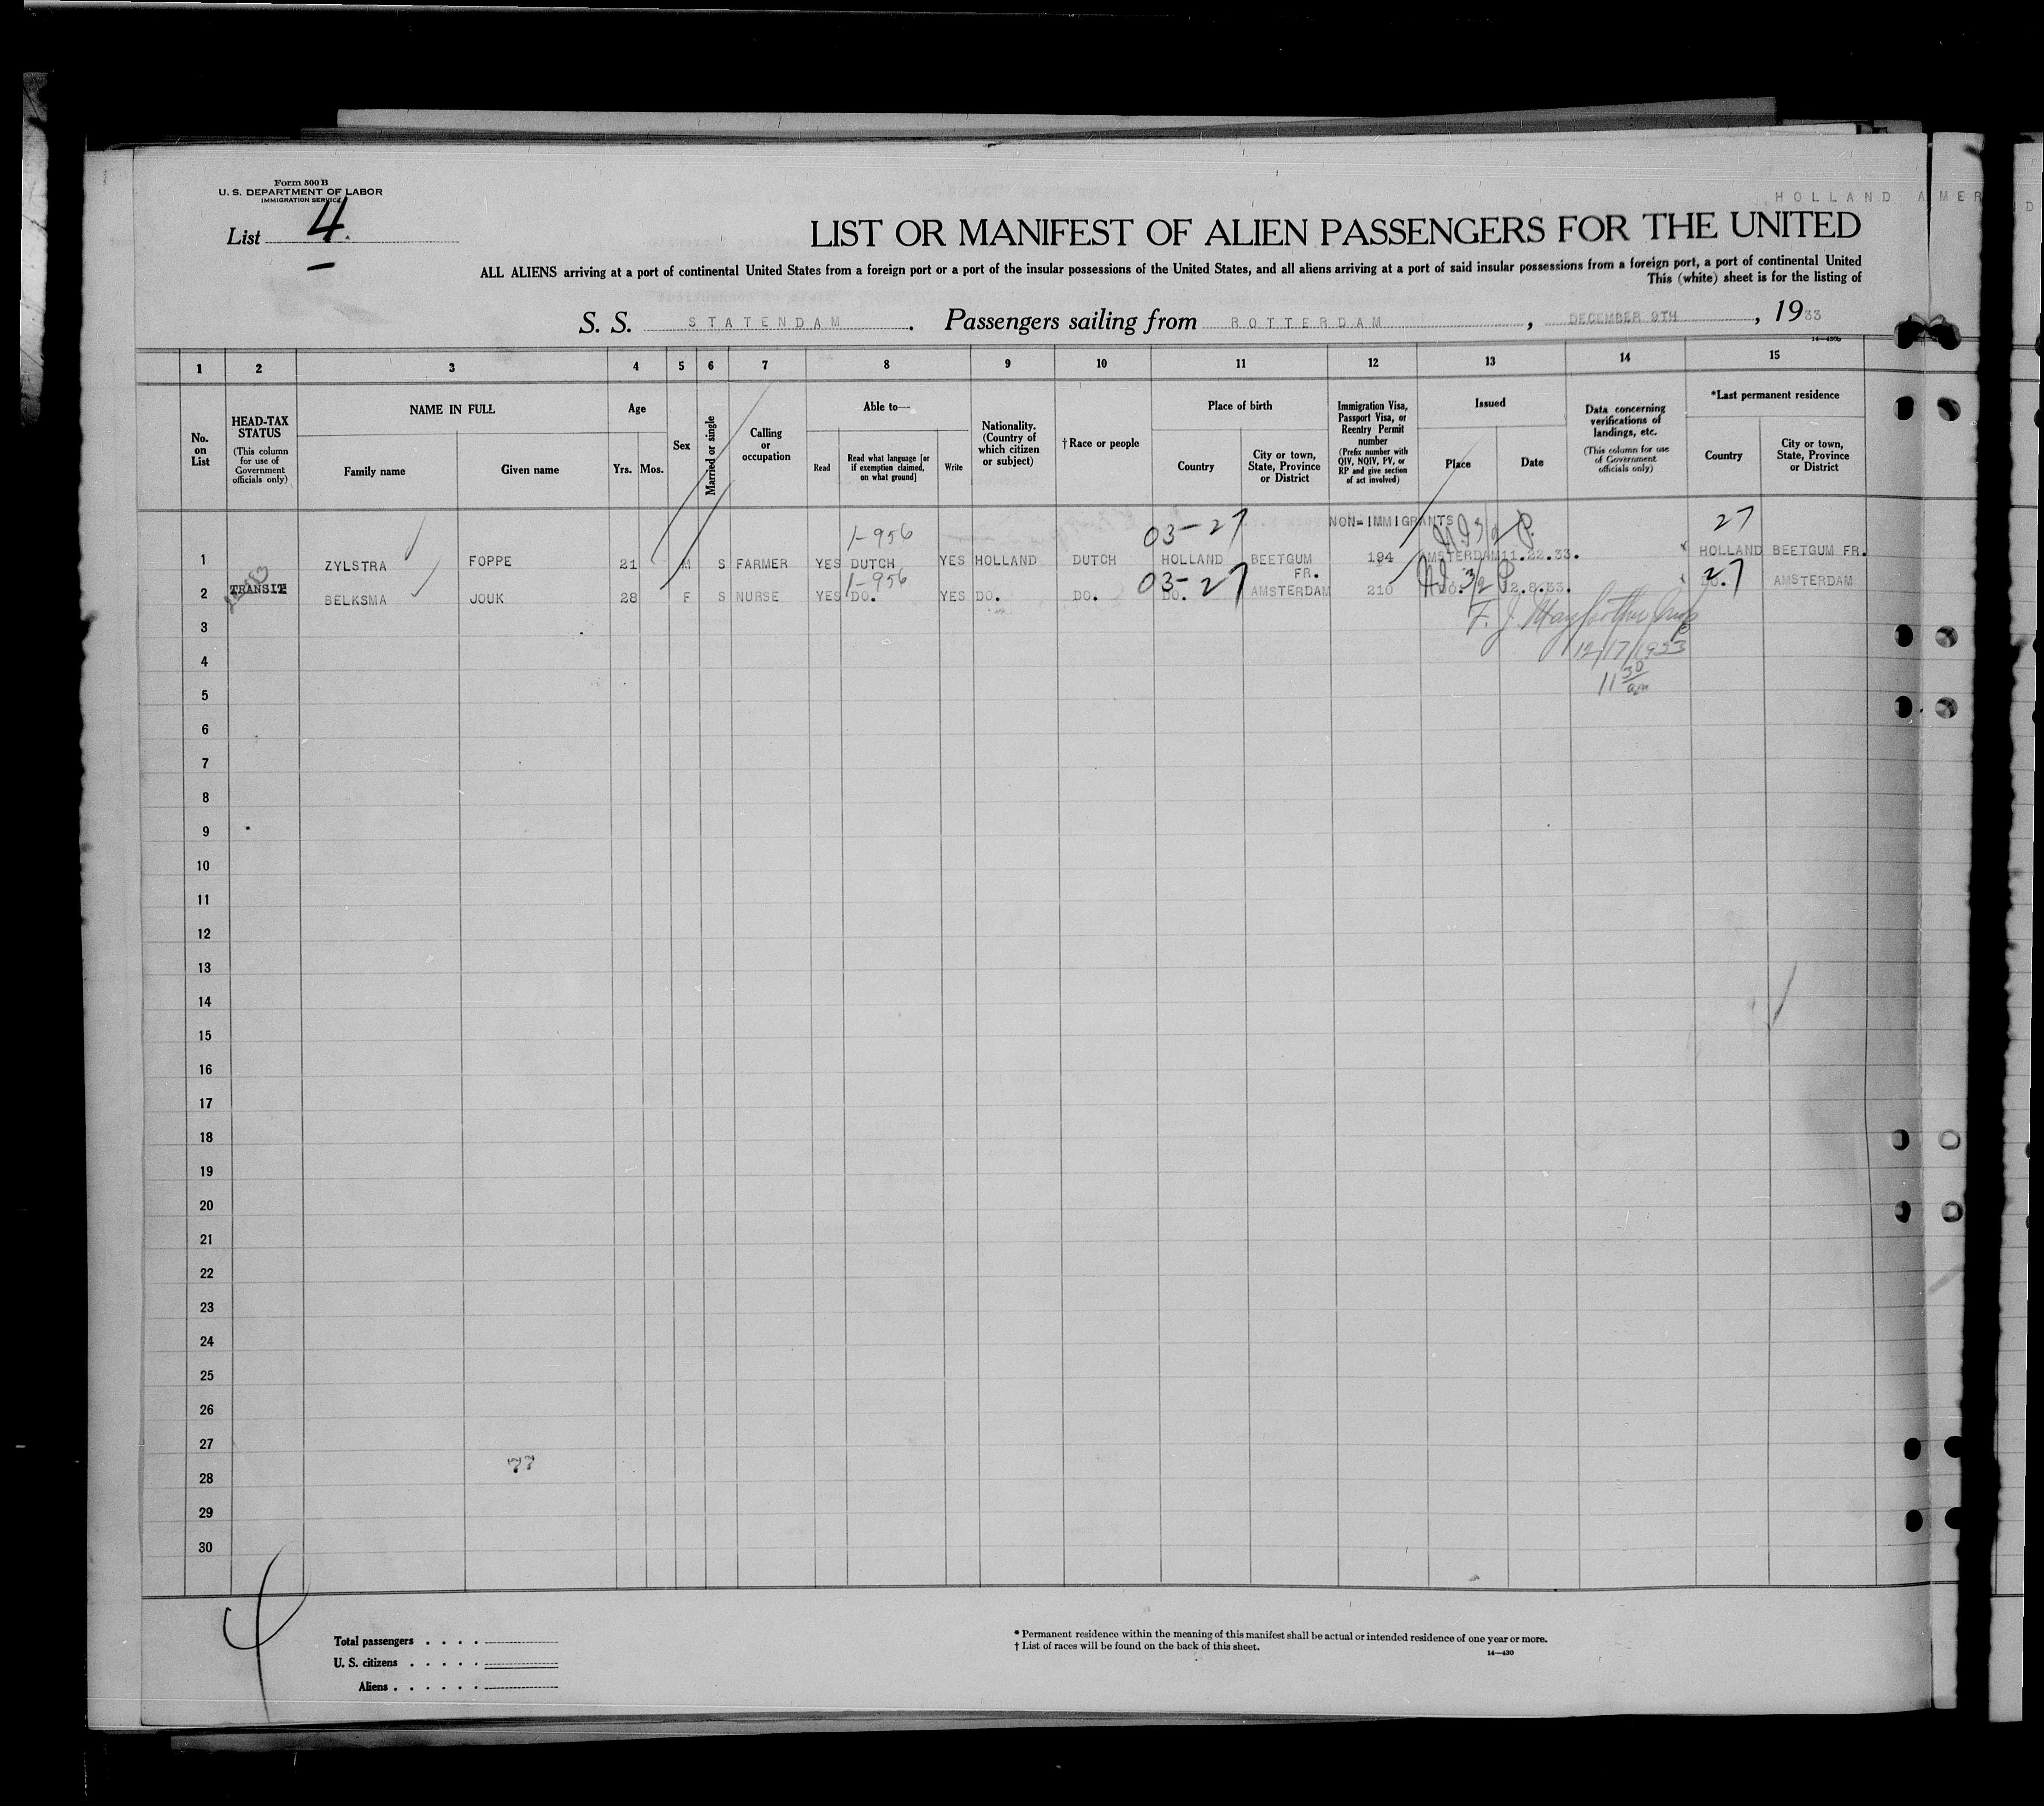 Form 500 B
U. S. DEPARTMENT OF LABOR
IMMIGRATION SERVICE
HOLLAND AMER
List 4
LIST OR MANIFEST OF ALIEN PASSENGERS FOR THE UNITED
ALL ALIENS arriving at a port of continental United States from a foreign port or a port of the insular possessions of the United States, and all aliens arriving at a port of said insular possessions from a foreign port, a port of continental United
This (white) sheet is for the listing of
S. S. STATENDAM. Passengers sailing from ROTTERDAM, DECEMBER 9TH, 1933
14—430b
1 2 3 4 5 6 7 8 9 10 11 12 13 14 15
No. on List
HEAD-TAX STATUS
(This column for use of Government officials only)
NAME IN FULL
Family name
Given name
Age
Yrs. Mos.
Sex
Married or single
Calling or occupation
Able to—
Read
Read what language [or if exemption claimed, on what ground]
Write
Nationality. (Country of which citizen or subject)
†Race or people
Place of birth
Country
City or town, State, Province or District
Immigration Visa, Passport Visa, or Reentry Permit number
(Prefix number with QIV, NQIV, PV, or RP and give section of act involved)
Issued
Place
Date
Data concerning verifications of landings, etc.
(This column for use of Government officials only)
*Last permanent residence
Country
City or town, State, Province or District
NON-IMMIGRANTS
1-956 03-27 27
1 ZYLSTRA FOPPE 21 M S FARMER YES DUTCH YES HOLLAND DUTCH HOLLAND BEETGUM FR. 194 AMSTERDAM 11.22.33. HOLLAND BEETGUM FR.
1-956 03-27 27
2 TRANSIT BELKSMA JOUK 28 F S NURSE YES DO. YES DO. DO. DO. AMSTERDAM 210 DO. 12.8.33. DO. AMSTERDAM
3
12/17/1933
4
11 30 am
5
6
7
8
9
10
11
12
13
14
15
16
17
18
19
20
21
22
23
24
25
26
27
77
28
29
30
Total passengers
U. S. citizens
Aliens
* Permanent residence within the meaning of this manifest shall be actual or intended residence of one year or more.
† List of races will be found on the back of this sheet.
14—430